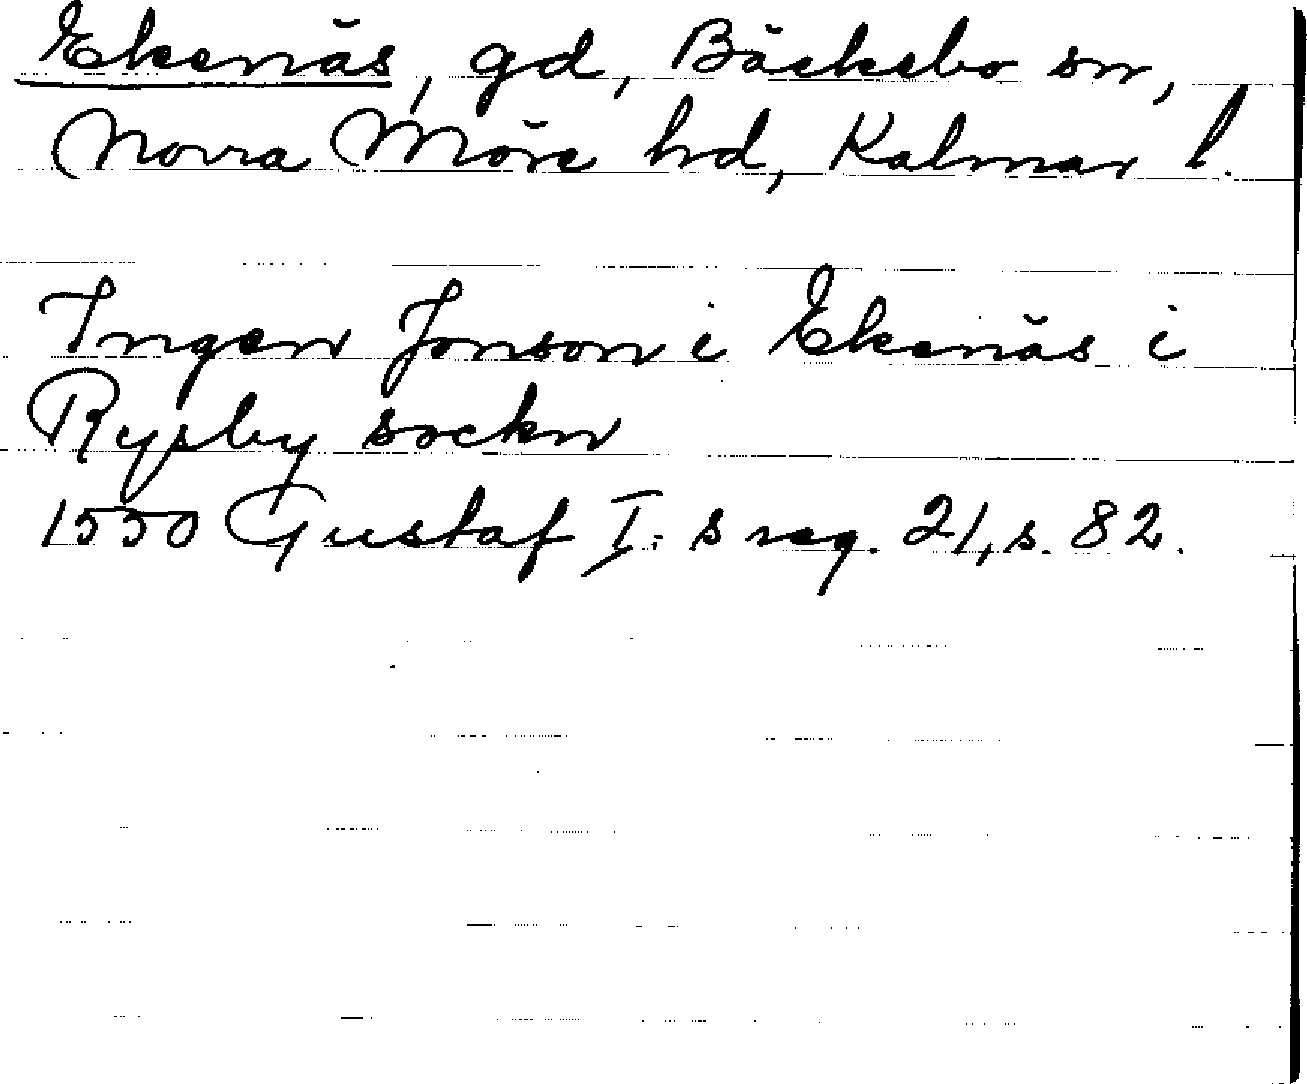 Ekenäs, gd, Bäckebo sn,
Norra Möre hd, Kalmar l.
Ingen Jonson i Ekenäs i
Rysby sockn
1550 Gustaf I:s reg. 21, s. 82.